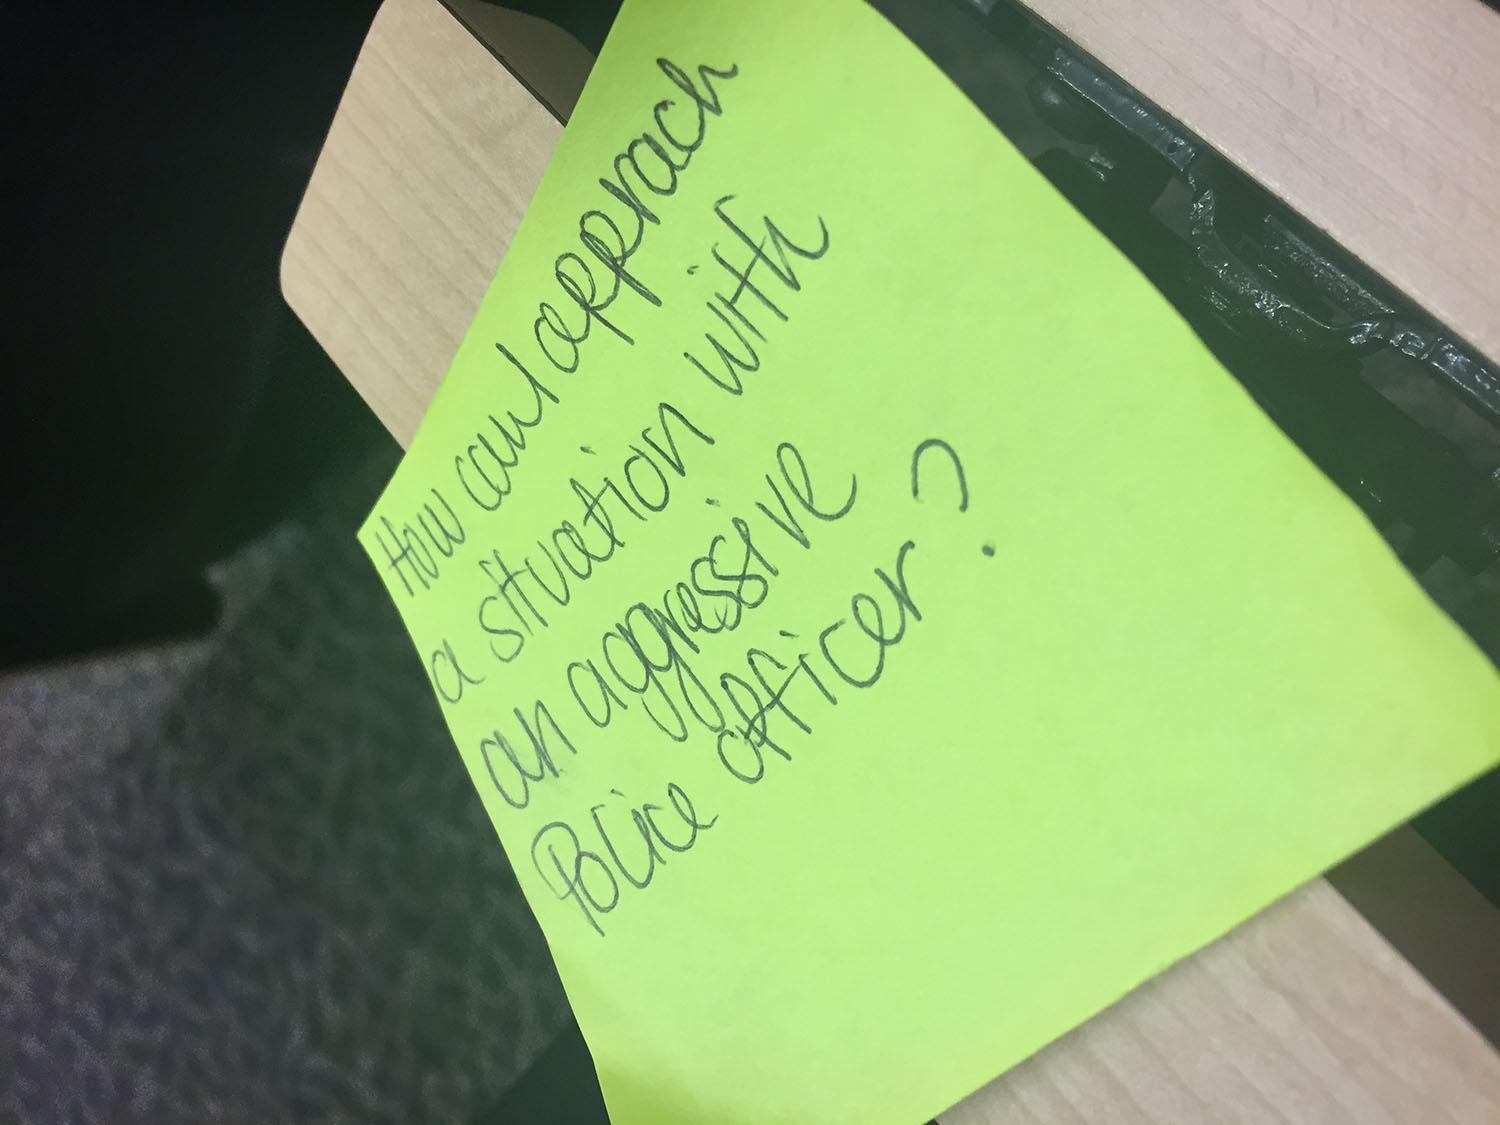 How can I approach
a situation with
an aggressive
Police officer?